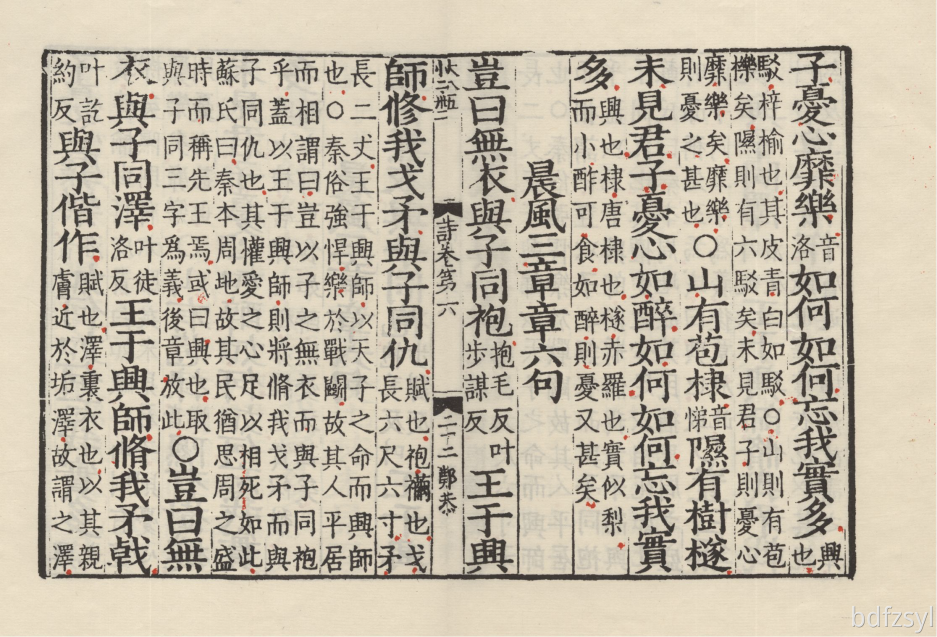 子憂心靡樂音洛如何如何忘我實多興也
駁梓榆也其皮青白如駁○山則有苞
櫟矣隰則有六駁矣未見君子則憂心
靡樂矣靡樂則憂之甚也○山有苞棣音悌隰有樹檖
未見君子憂心如醉如何如何忘我實
多興也棣唐棣也檖赤羅也實似梨而小酢可食如醉則憂又甚矣
晨風三章章六句
豈曰無衣與子同袍抱毛反叶步謀反王于興
詩卷第六
二十二
鄭恭
師修我戈矛與子同仇賦也袍襺也戈長六尺六寸矛
長二丈王于興師以天子之命而興師
也○秦俗強悍樂於戰鬭故其人平居
而相謂曰豈以子之無衣而與子同袍
乎蓋以王于興師則將脩我戈矛而與
子同仇也其懽愛之心足以相死如此
蘇氏曰秦本周地故其民猶思周之盛
時而稱先王焉或曰興也取與子同三字為義後章放此○豈曰無
衣與子同澤叶徒洛反王于興師脩我矛戟
叶訖約反與子偕作賦也澤裏衣也以其親膚近於垢澤故謂之澤
bdfzsyl